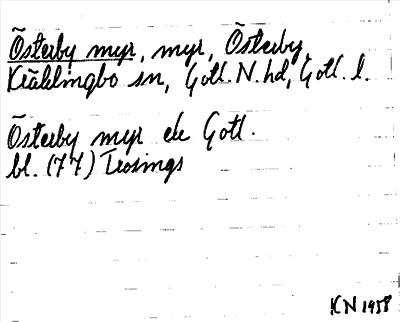 Österby myr, myr, Österby,
Kräklingbo sn, Gotl. N. hd, Gotl. l.
Österby myr ek Gotl.
bl. (77) Trosings
KN 1958